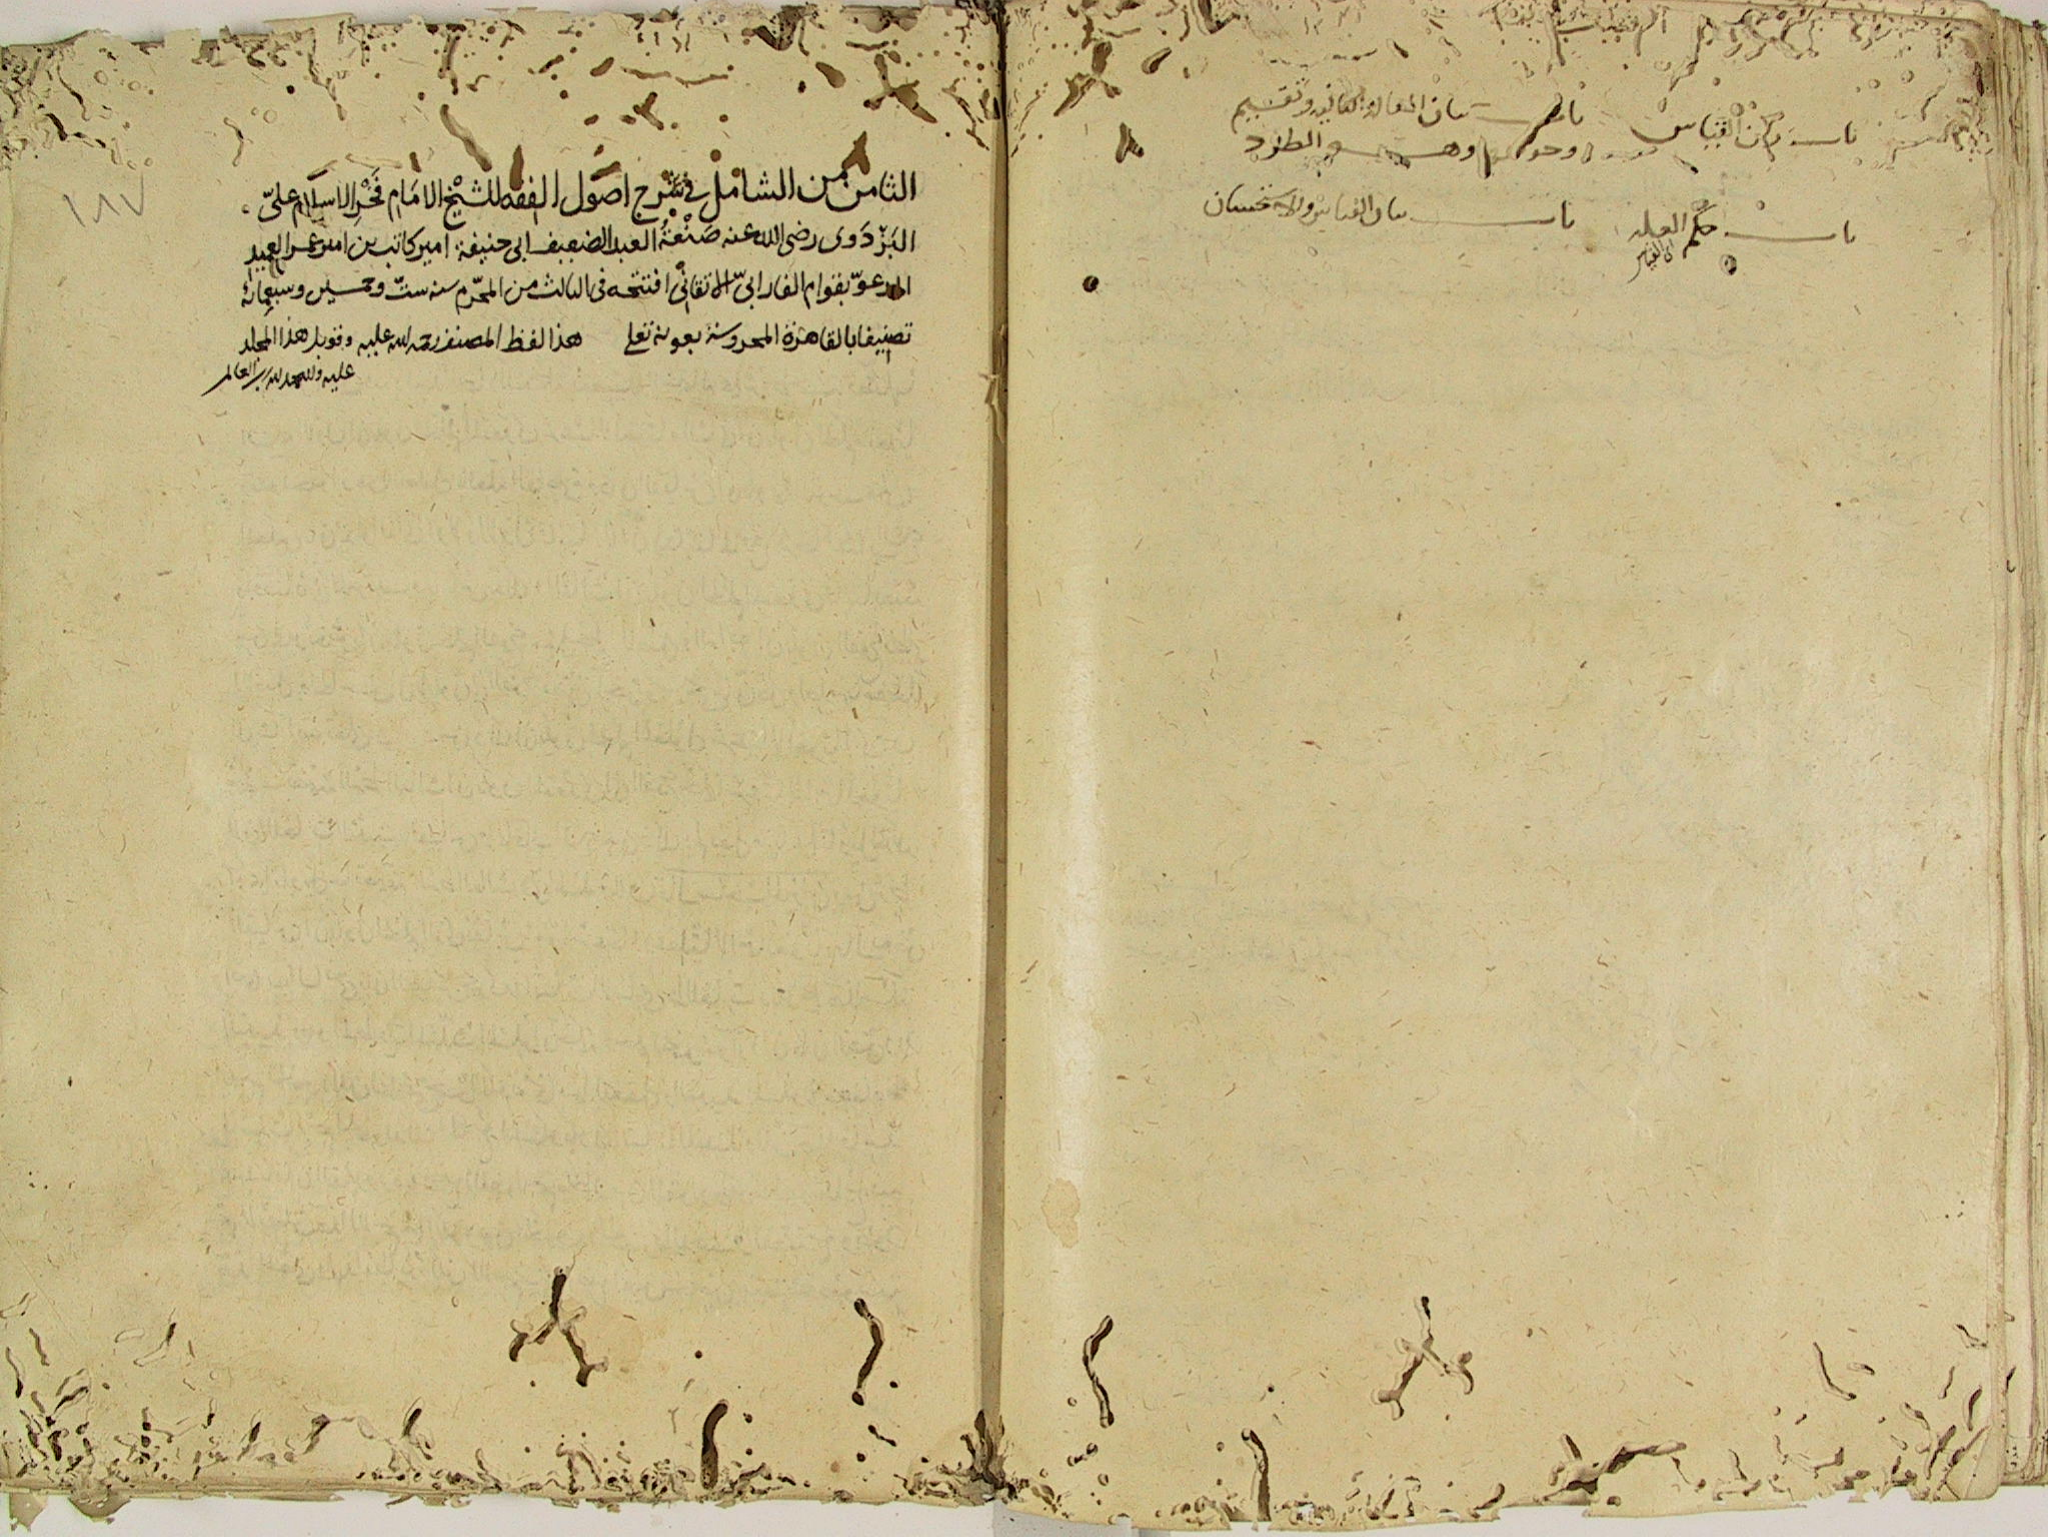 باب ركن القياس
باب بيان المقالة الثانية وتقسيم
وجوهها وهو الطرد
باب حكم العلة
باب بيان القياس والاستحسان
١٨٧
الثامن من الشامل في شرح اصول الفقه للشيخ الامام فخر الاسلام علىّ
البزدوى رضى الله عنه صنعة العبد الضعيف ابى حنيفة امير كاتب بن امير عمر العميد
المدعوّ بقوام الفارابىّ الاتقانىّ افتتحه فى الثالث من المحرّم سنه ستّ وخمسين وسبعمائة
تصنيفا بالقاهرة المحروسة بعونه تعلى هذا لفظ المصنف رحمه الله عليه وقوبل هذا المجلد
عليه ولله الحمد لله رب العالمين